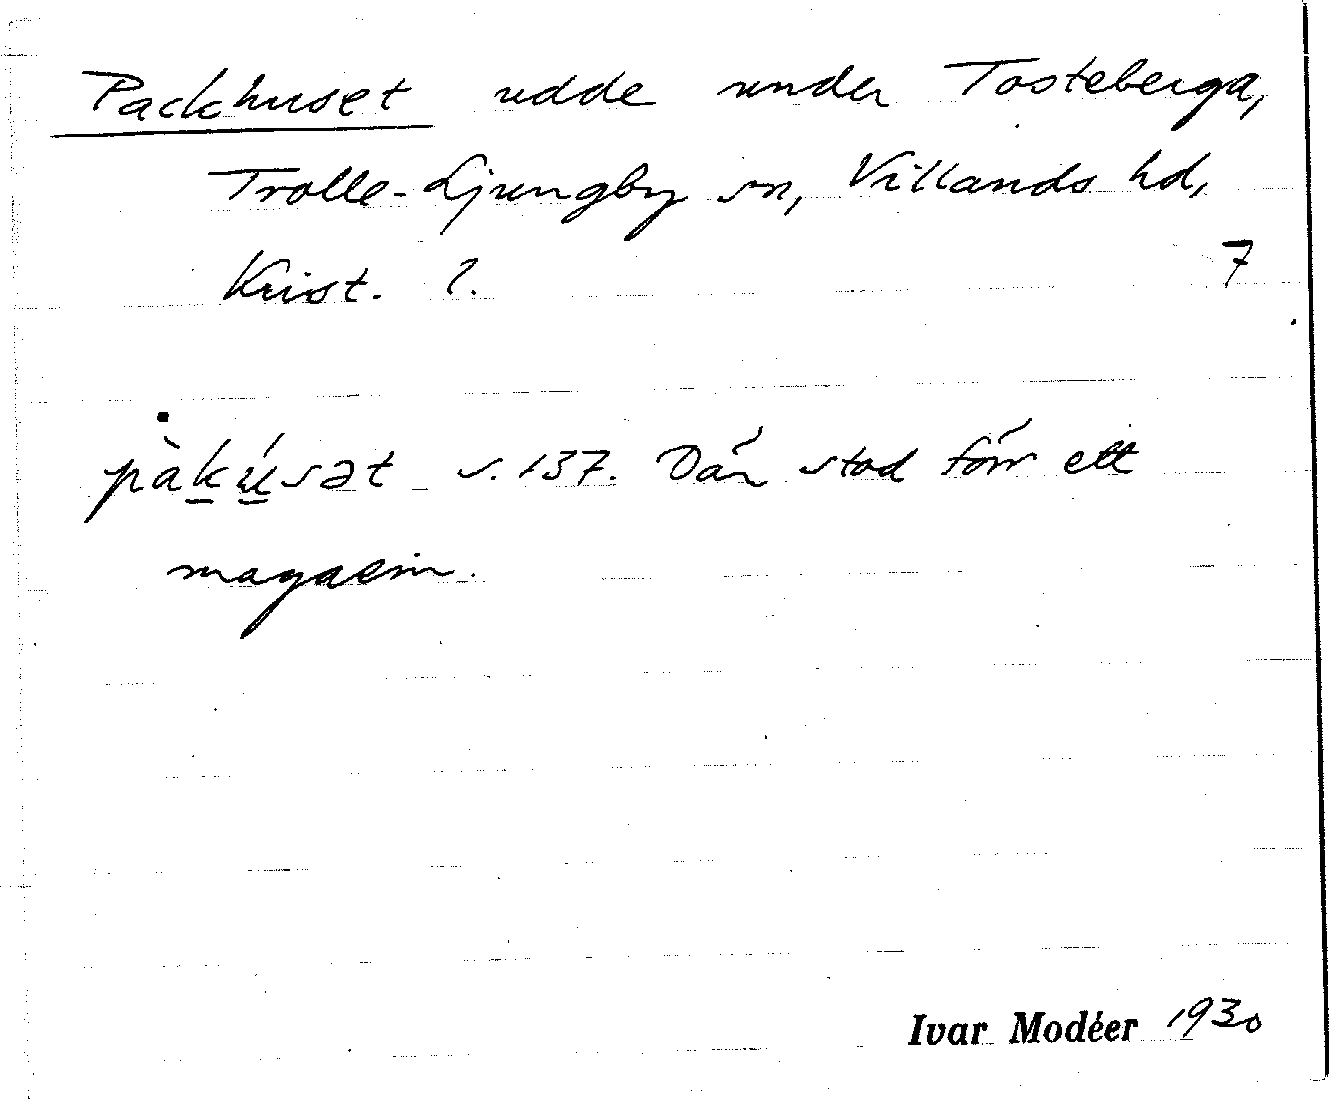 Packhuset udde under Tosteberga,
Trolle-Ljungby sn, Villands hd,
Krist. l. 7
pàk̲ú̲sət s. 137. Där stod förr ett
magasin.
Ivar Modéer 1930